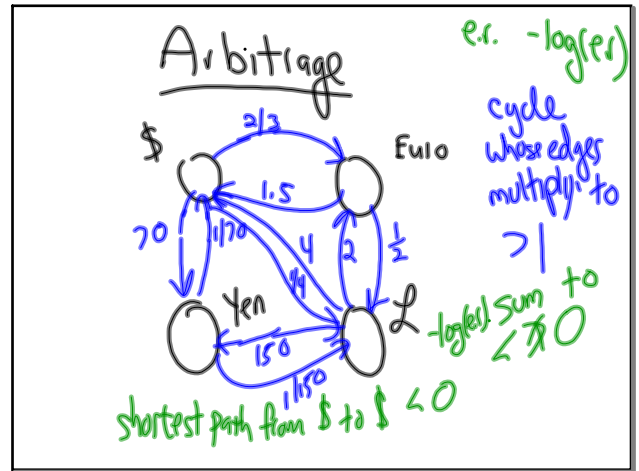 Arbitrage
e.r. -log(er)
$
2/3
Euro
cycle
whose edges
multiply to
>1
1.5
70
1/70
4
1/4
2
1/2
Yen
£
150
1/150
-log(er). sum to
< 0
shortest path from $ to $ < 0